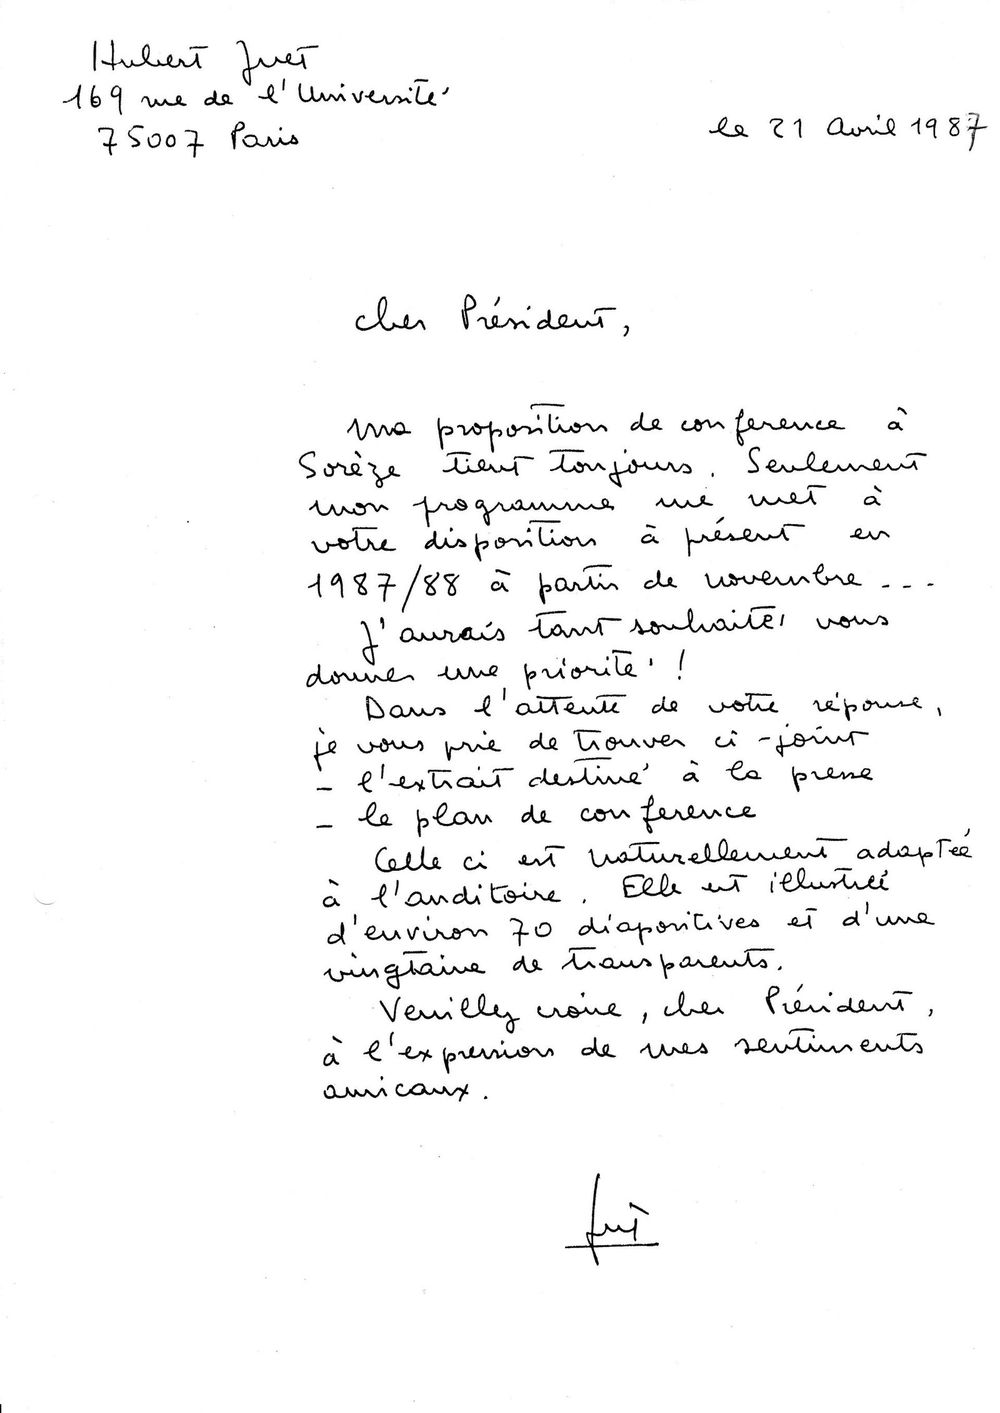 Hubert Juet
169 rue de l'Université
75007 Paris
le 21 Avril 1987
cher Président,
Ma proposition de conference à
Sorèze tient toujours. Seulement
mon programme me met à
votre disposition à présent en
1987/88 à partir de novembre ...
J'aurais tant souhaité vous
donner une priorité !
Dans l'attente de votre réponse,
je vous prie de trouver ci-joint
- l'extrait destiné à la presse
- le plan de conference
Celle ci est naturellement adaptée
à l'auditoire. Elle est illustrée
d'environ 70 diapositives et d'une
vingtaine de transparents.
Veuillez croire, cher Président,
à l'expression de mes sentiments
amicaux.
Juet